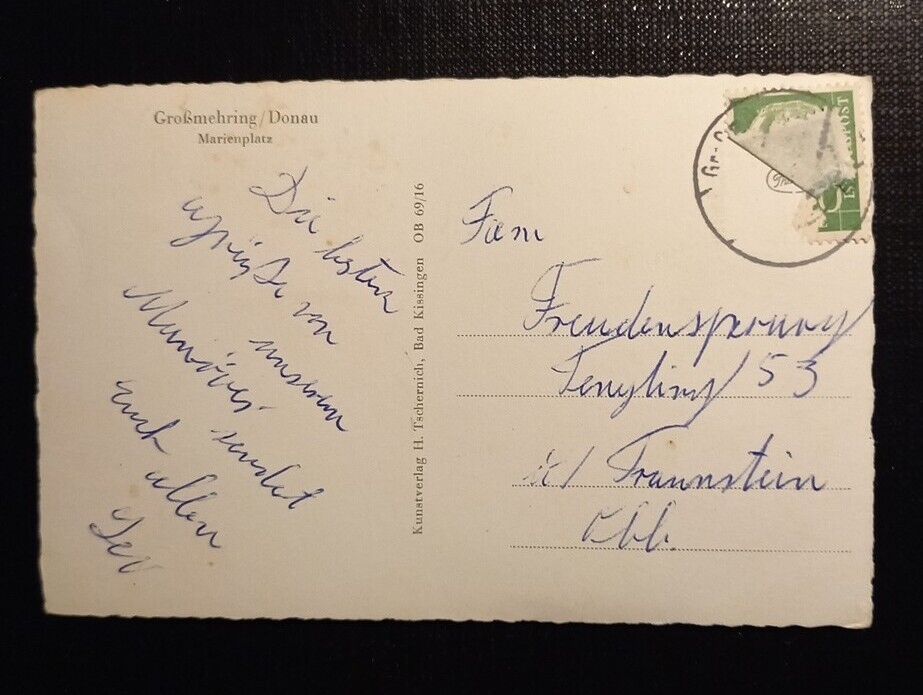 Großmehring/Donau
Marienplatz
Die besten
Grüße von
unserem
Manöver sendet
euch allen
Kunstverlag H. Tschernich, Bad Kissingen OB 69/16
Fam
Freudensprung
Tengling 53
b/ Traunstein
Obb.